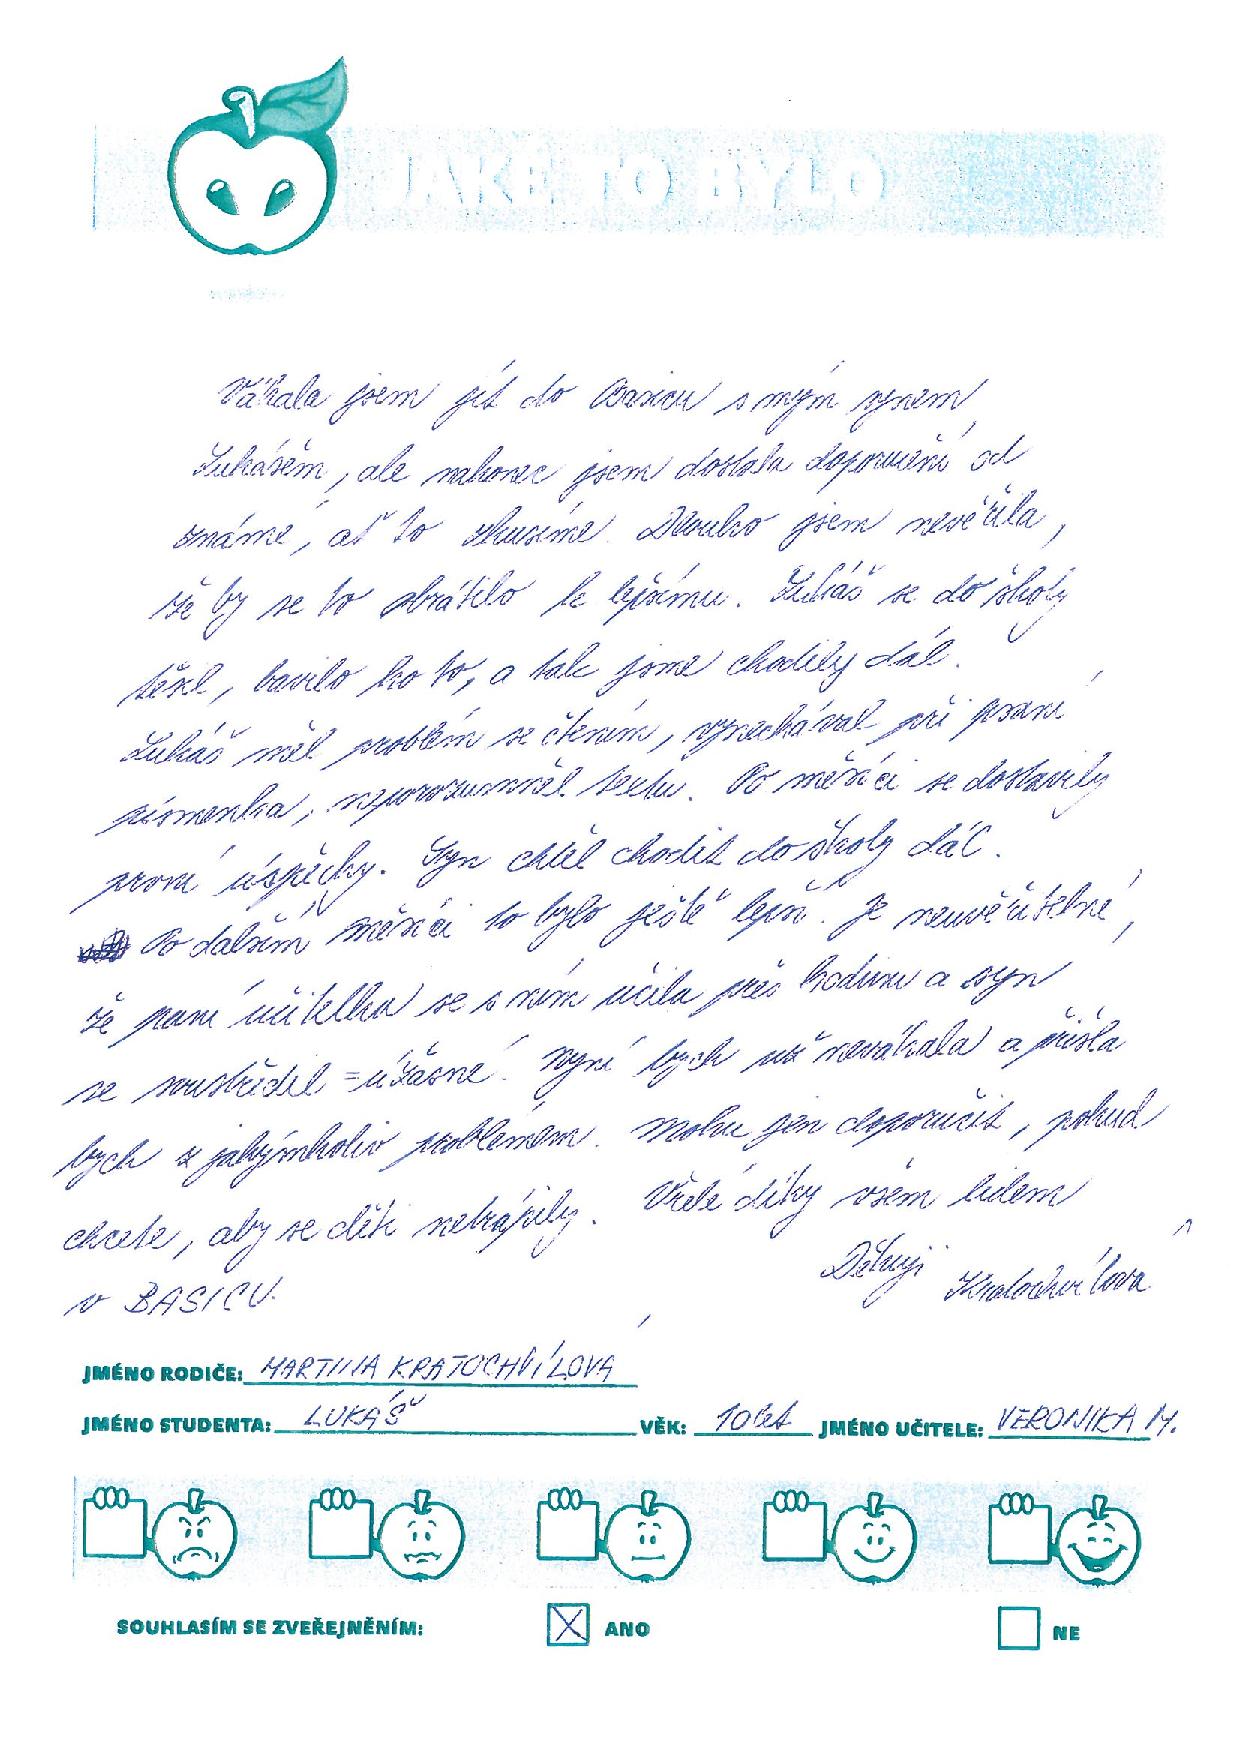 JAKÉ TO BYLO
Váhala jsem jít do Basicu s mým synem
Lukášem, ale nakonec jsem dostala doporučení od
známé, ať to zkusíme. Dlouho jsem nevěřila,
že by se to obrátilo k lepšímu. Lukáš se do školy
těšil, bavilo ho to, a tak jsme chodily dál.
Lukáš měl problém se čtením, vynechával při psaní
písmenka, neporozumněl textu. Po měsíci se dostavily
první úspěchy. Syn chtěl chodit do školy dál.
Po dalším měsíci to bylo ještě lepší. Je neuvěřitelné,
že paní učitelka se s ním učila přes hodinu a syn
se soustředil = úžasné. Nyní bych už neváhala a přišla
bych z jakýmkoliv problémem. Mohu jen doporučit, pokud
chcete, aby se děti netrápily. Vřelé díky všem lidem
v BASICU.
Děkuji Kratochvílová
JMÉNO RODIČE: MARTINA KRATOCHVÍLOVÁ
JMÉNO STUDENTA: LUKÁŠ VĚK: 10 let JMÉNO UČITELE: VERONIKA M.
SOUHLASÍM SE ZVEŘEJNĚNÍM: ANO NE